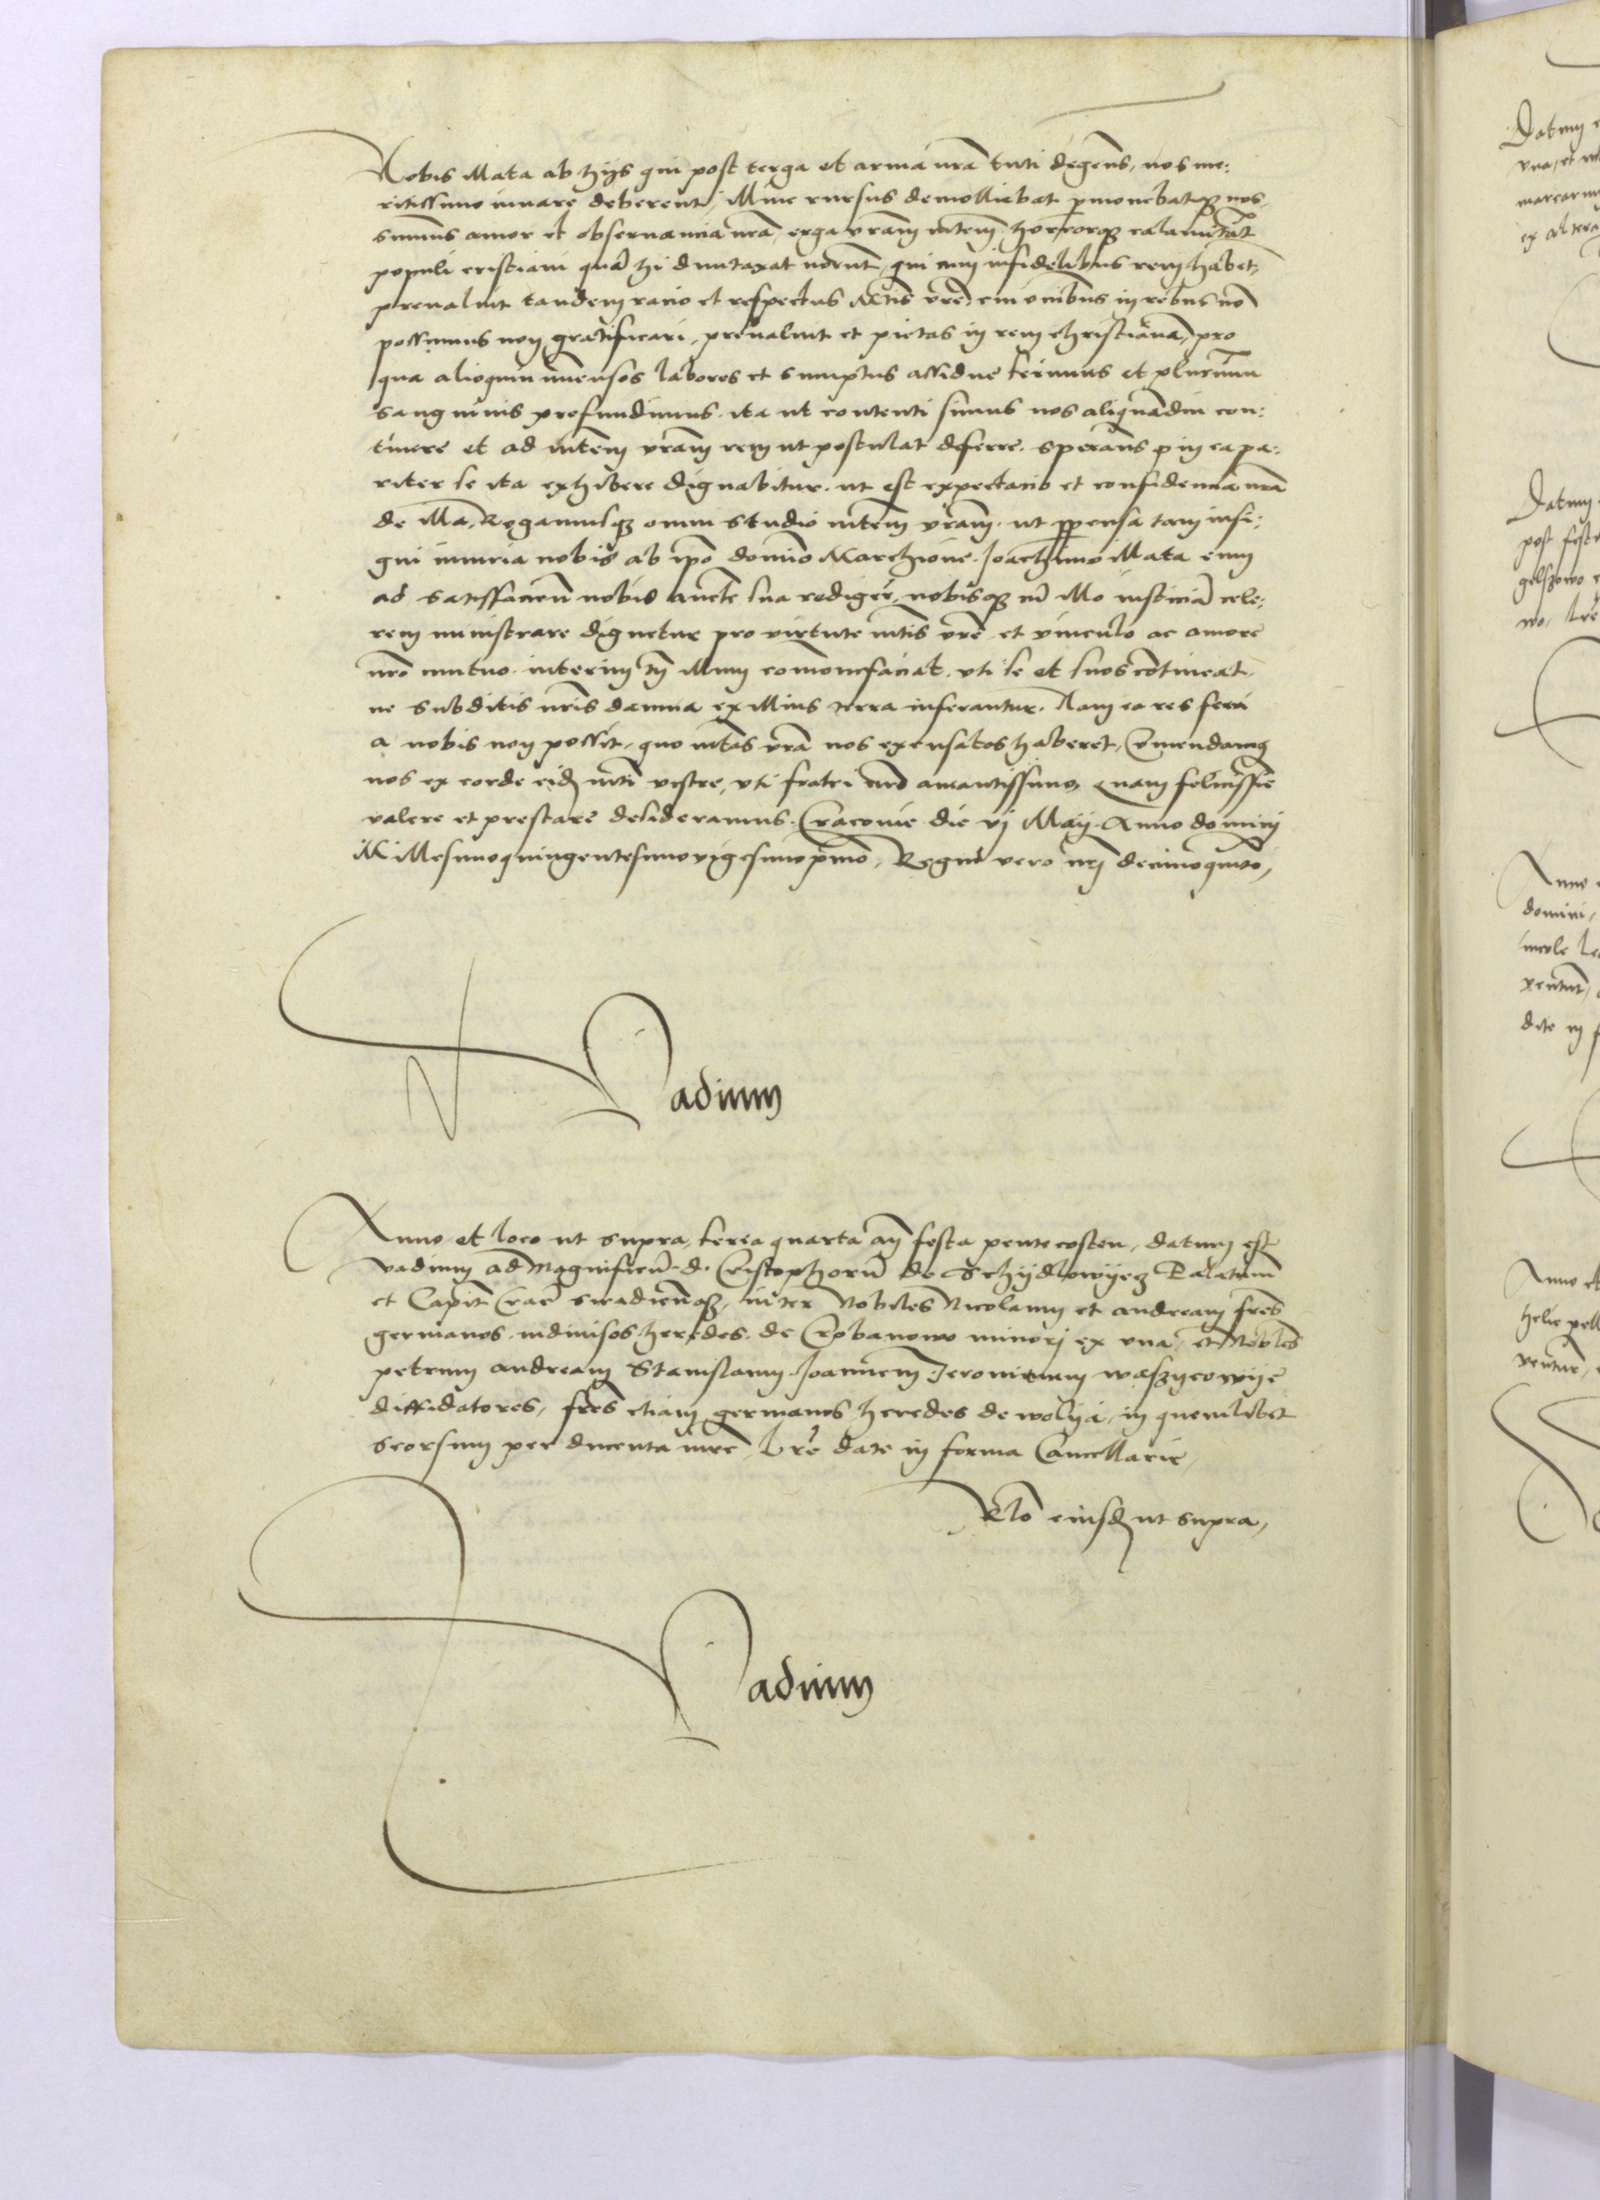 Nobis illata ab hijs qui post terga et arma nrã tuti degens, nos me:
ritissimo iuuare deberent, illinc rursus demolliebat pmonebatqz nos,
sumus amor et obseruancia nrã, erga vram mtem horrorqz calamitat
populi cristiani quã hi dumtaxat norũt, qui cum infidelibus rem habet,
preualuit tandem racio et respectus Mtis vre, cui õnibus in rebus nõ
possumus non gratificari, preualuit et pietas in rem christianã, pro
qua alioquin immensos labores et sumptus assidue ferimus et plurimũ
sanguinis profundimus. ita ut contenti simus nos aliquãdiu con:
tinere et ad mtem vram rem ut postulat deferre. sperans q in ea pa:
riter se ita exhibere dignabitur. ut est expectacio et confidencia nrã
de illa, Rogamusqz omni studio mtem vram. ut ppensa tam insi:
gni iniuria nobis ab ipo domino Marchione Joachimo illata eum
ad satisfaccem nobis aucte sua redigere, nobisqz cũ illo iusticiã cele:
rem ministrare dignetur pro virtute mtis vre et vinculo ac amore
nro mutuo. interim tñ illum comonefaciat. vti se et suos cõtineat,
ne subditis nris damna ex illius terra inferantur. Nam ea res ferri
a nobis non possit, quo mtas vrã nos excusatos haberet, Cõmendamq
nos ex corde eidz mti vestre, vti fratri nrõ amantissimo, quam felicissie
valere et prestare desideramus. Cracouie die vj Maij. Anno domini
Millesimoquingentesimovigesimoprimo, Regni vero nri decimoquito,
Vadium
Anno et loco ut supra, feria quarta añ festa pentecosten, datum est
vadium ad Magnificũ d. Cristophorũ de Schijdlowijecz Palatinũ
et Capit Crac siradiensqz, inter Nobiles Nicolaum et andream fres
germanos indiuisos heredes de Crobanowo minori ex vna, et Nobiles
petrum andream Stanislaum Joannem Jeronimum waszijcowije
diffidatores, fres etiam germanos heredes de wolija, in quemlibet
seorsum per ducenta mrc, Lrẽ date in forma Cancellarie,
Rlõ eiusdz ut supra,
Vadium